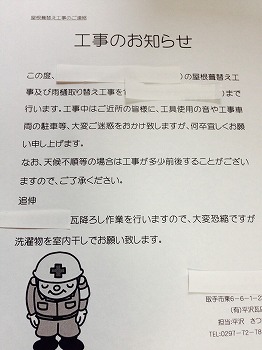 屋根葺替え工事のご連絡
工事のお知らせ
この度、
)の屋根葺替え工
事及び雨樋取り替え工事を1
)まで
行います。工事中はご近所の皆様に、工具使用の音や工事車
両の駐車等、大変ご迷惑をおかけ致しますが、何卒宜しくお願
い申し上げます。
なお、天候不順等の場合は工事が多少前後することがござい
ますので、ご了承ください。
追伸
瓦降ろし作業を行いますので、大変恐縮ですが
洗濯物を室内干しでお願い致します。
取手市東6-6-1-2
(有)平沢瓦
担当:平沢 さつ
TEL:0297-72-78